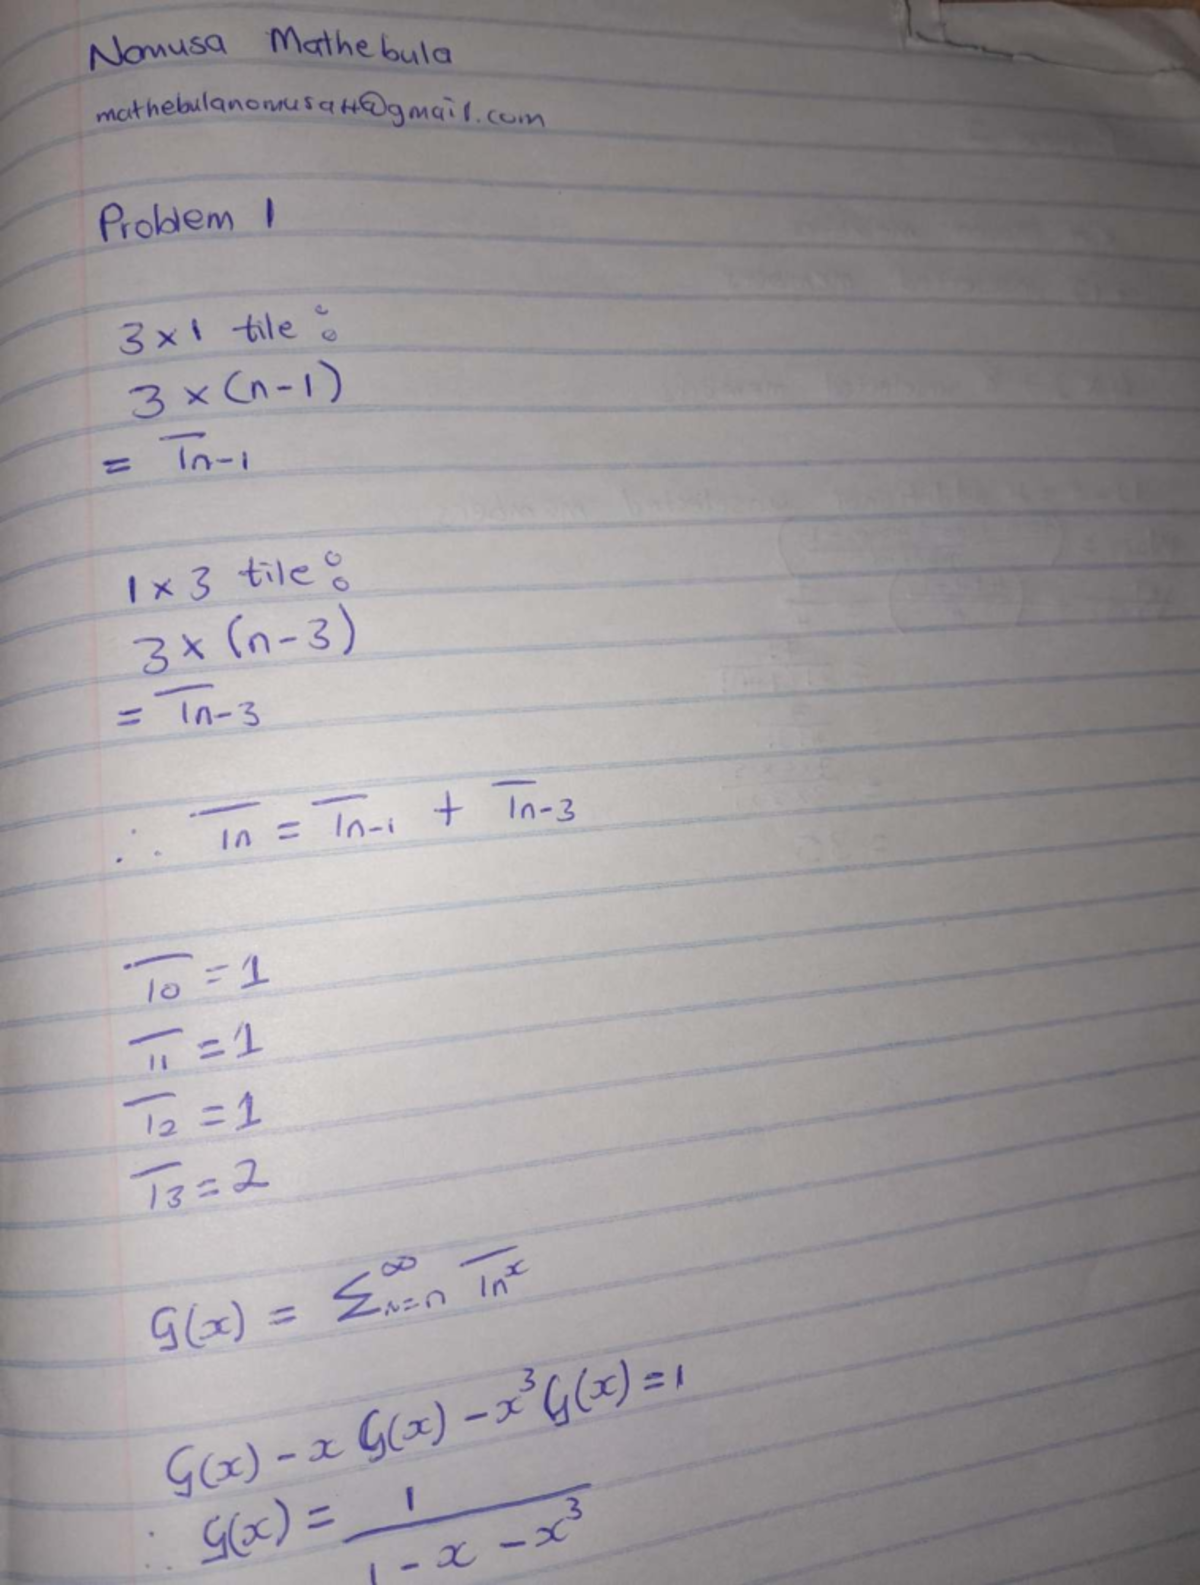 Nomusa Mathebula
mathebulanomusa44@gmail.com
Problem 1
3 × 1 tile:
3 × (n-1)
= Tn-1
1 × 3 tile:
3 × (n-3)
= Tn-3
∴ Tn = Tn-1 + Tn-3
T0 = 1
T1 = 1
T2 = 1
T3 = 2
G(x) = Σ∞n=n Tnˣ
G(x) - x G(x) - x³ G(x) = 1
∴ G(x) = 1
1 - x - x³